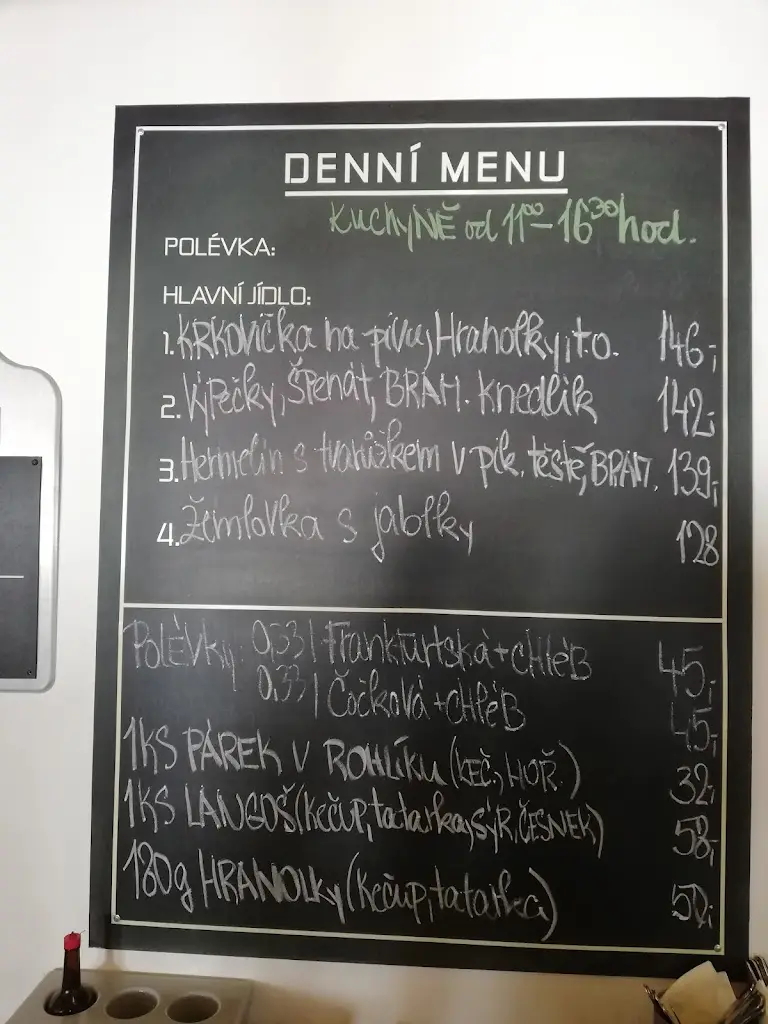 DENNÍ MENU
KUCHYNĚ od 11⁰⁰ - 16³⁰ hod.
POLÉVKA:
HLAVNÍ JÍDLO:
1. KRKOVIČKA na pivu, Hranolky, t.o. 146,-
2. Výpečky, Špenát, BRAM. Knedlík 142,-
3. Hermelín s tvarůžkem v pik. těstě, BRAM. 139,-
4. Žemlovka s jablky 128
Polévky: 0,33 l Frankfurtská + CHLÉB 45,-
0,33 l Čočková + CHLÉB 45,-
1KS PÁREK V ROHLÍKU (KEČ., HOŘ.) 32,-
1KS LANGOŠ (Kečup, tatarka, SÝR, ČESNEK) 58,-
180g HRANOLKY (Kečup, tatarka) 50,-